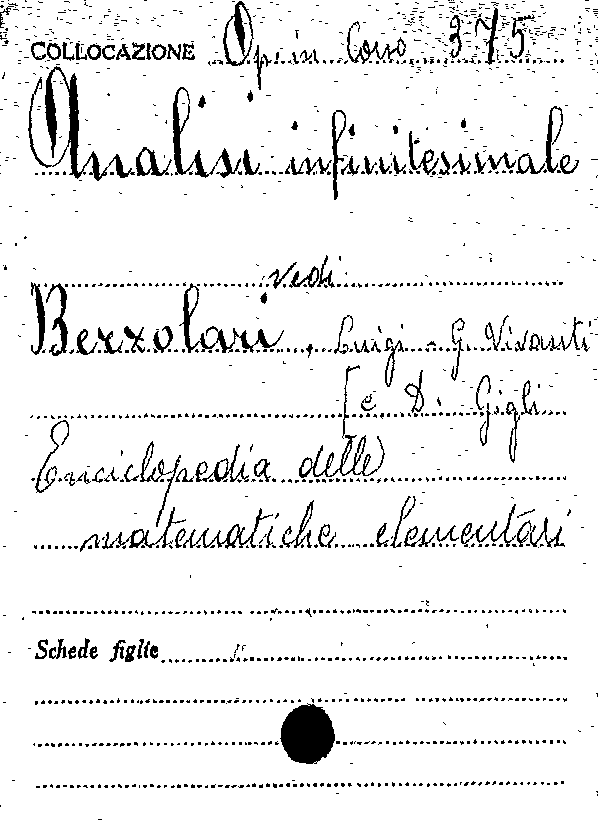 COLLOCAZIONE Op. in Corso 375
Analisi infinitesimale
vedi
Berzolari, Luigi - G. Vivanti
[e D. Gigli
Enciclopedia delle
matematiche elementari
Schede figlie "